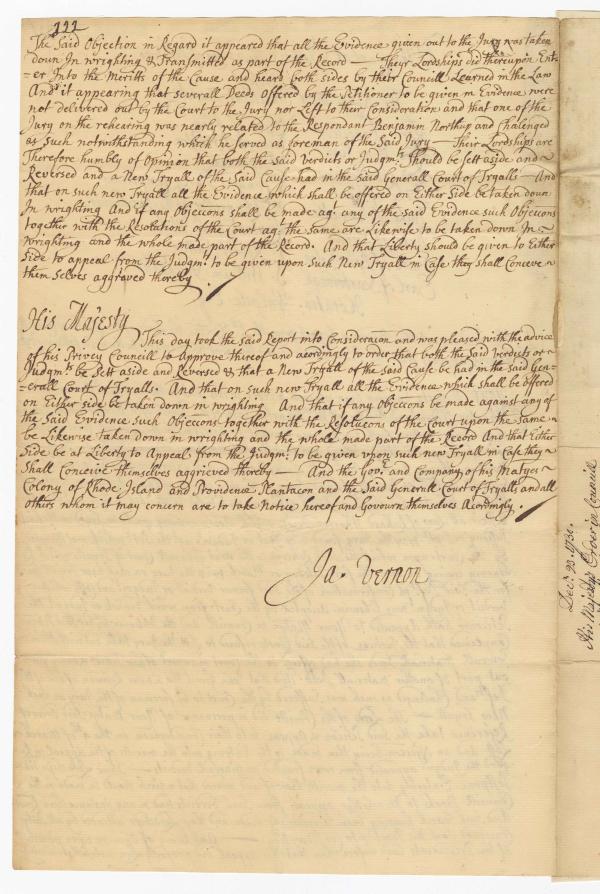 222
The Said Objection in Regard it appeared that all the Evidence given out to the Jury was taken
down In wrighting & Transmitted as part of the Record — Their Lordships did thereupon Ent-
-er Into the Meritts of the Cause and heard both sides by their Councill Learned in the Law
And it appearing that severall Deeds Offered by the Petitioner to be given in Evidence were
not delivered out by the Court to the Jury nor Left to their Consideration and that one of the
Jury on the rehearing was nearly related to the Respondant Benjamin Northup and Chalenged
as Such notwithstanding which he served as foreman of the Said Jury — Their Lordships are
Therefore humbly of Opinion that both the Said Verdicts or Judgmts. Should be sett aside and
Reversed and a New Tryall of the Said Cause had in the said Generall Court of Tryalls — And
that on such new Tryall all the Evidence which shall be offered on Either Side be taken down
In wrighting And if any Objeccons shall be made agt. any of the said Evidence such Objeccons
together with the Resolutions of the Court agt. the Same are Likewise to be taken down In
wrighting and the whole made part of the Record. And that Liberty should be given to Either
Side to appeal from the Judgmt. to be given upon such New Tryall in Case they shall Conceve
them selves aggraved thereby
His Majesty
This day took the Said Report into Consideracon and was pleased with the advice
of his Privey Councill to Approve thereof and acordingly to order that both the Said Verdicts or
Judgmts. be Sett aside and Reversed & that a New Tryall of the Said Cause be had in the said Gen-
-erall Court of Tryalls. And that on such new Tryall all the Evidence which shall be offered
on Either side be taken down in wrighting And that if any Objeccons be made against any of
the Said Evidence such Objeccons together with the Resolveons of the Court upon the Same
be Likewise taken down in wrighting and the whole made part of the Record And that Either
Side be at Liberty to Appeal from the Judgmt. to be given upon such new Tryall in Case they
Shall Conceive themselves aggrieved thereby — And the Govr. and Company of his Matyes
Colony of Rhode Island and Providence Plantacon and the Said Generall Court of Tryalls and all
others whom it may concern are to take Notice hereof and Govourn themselves Acordingly.
Ja. Vernon
Decr. 23. 1730.
His Majestys Order in Councill